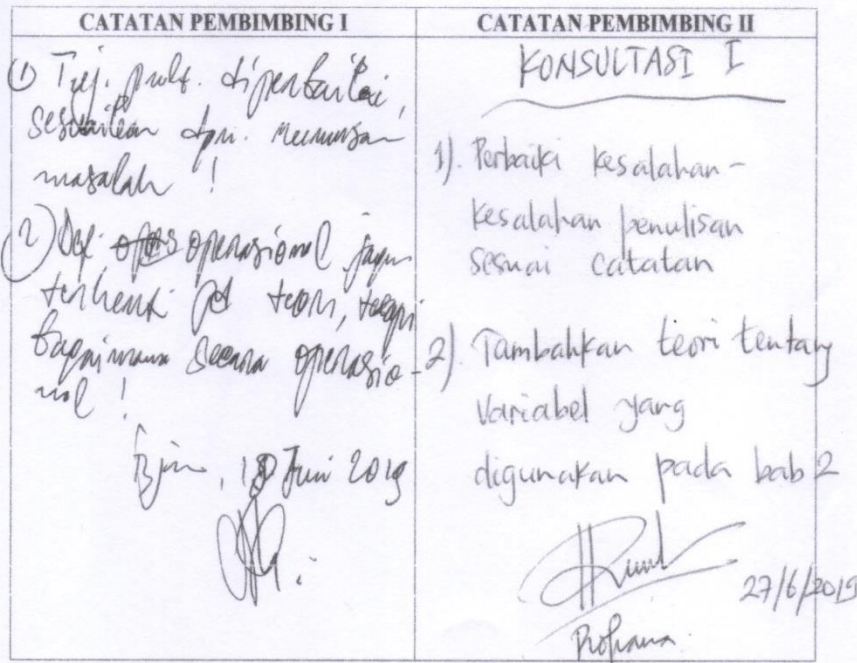 CATATAN PEMBIMBING I
① Tuj. diperbaiki,
sesuaikan dgn. rumusan
masalah !
② Def. operasional jangan
terhenti pd teori, tetapi
bagaimana secara operasio-
nal !
Bjm, Juni 2019
CATATAN PEMBIMBING II
KONSULTASI I
1). Perbaiki kesalahan-
kesalahan penulisan
sesuai catatan
2). Tambahkan teori tentang
Variabel yang
digunakan pada bab 2
27/6/2019